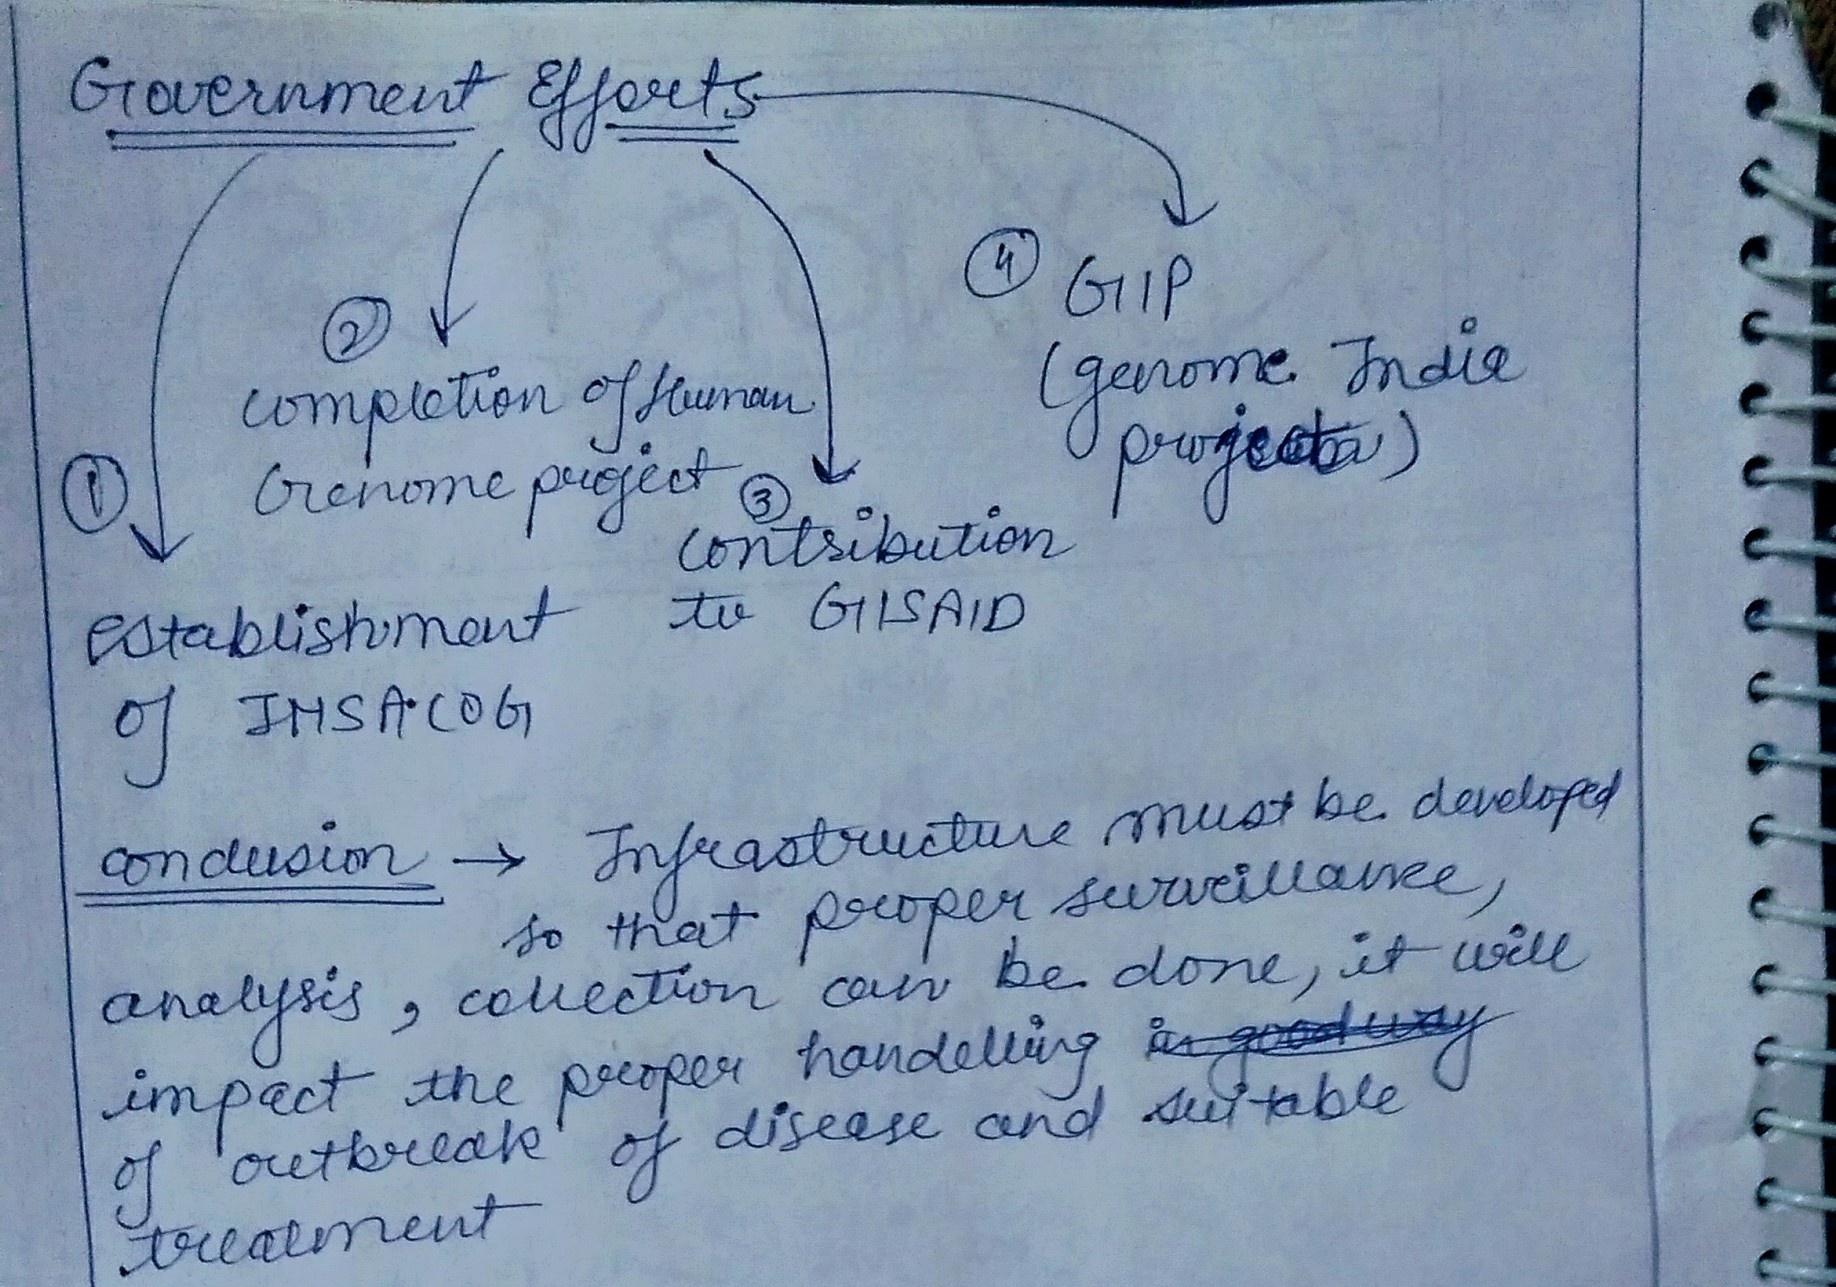 Government Efforts
④ GIP
(genome India
project)
②
completion of Human
Genome project
①
③
contribution
to GISAID
establishment
of INSACOG
conclusion → Infrastructure must be developed
so that proper surveillance,
analysis, collection can be done, it will
impact the proper handelling in good way
of outbreak of disease and suitable
treatment